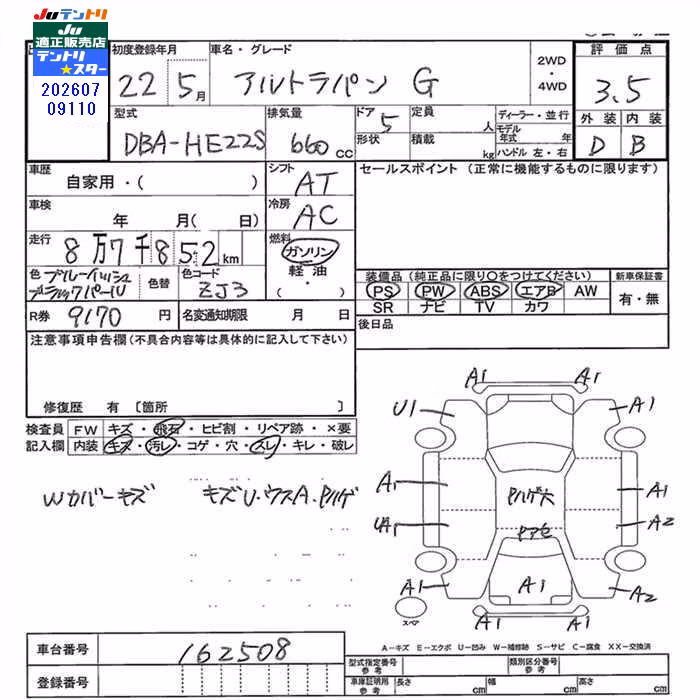 Juテントリ
Ju
適正販売店
テントリ
★スター
202607
09110
初度登録年月
22 5月
車名・グレード
アルトラパン G
2WD
・
4WD
評価点
3.5
外装 内装
D B
型式
DBA-HE22S
排気量
660cc
ドア
5
形状
定員
人
積載
kg
ディーラー・並行
モデル年式 年
ハンドル 左・右
車歴
自家用・( )
シフト
AT
セールスポイント (正常に機能するものに限ります)
車検
年 月( 日)
冷房
AC
走行
8万7千852km
燃料
ガソリン
軽油
・( )
色 ブルーイッシュ
ブラックパール
色替
色コード
ZJ3
装備品 (純正品に限り○をつけてください)
PS PW ABS エアB AW
SR ナビ TV カワ
新車保証書
有・無
R券 9170円
名変通知期限 月 日
後日品
注意事項申告欄(不具合内容等は具体的に記入して下さい)
修復歴 有 〔箇所 〕
検査員
記入欄
FW キズ・飛石・ヒビ割・リペア跡・×要
内装 キズ・汚レ・コゲ・穴・スレ・キレ・破レ
Wカバーキズ キズU.ウスA.Pハゲ
A1 A1
U1 A1
A1 Pハゲ大 A1
UA1 Pアセ A2
A1 A1 A2
スペア
A-キズ E-エクボ U-凹み W-補修跡 S-サビ C-腐食 XX-交換済
車台番号
162508
登録番号
型式指定番号
参考
類別区分番号
参考
車庫証明用
参考
長さ cm
幅 cm
高さ cm